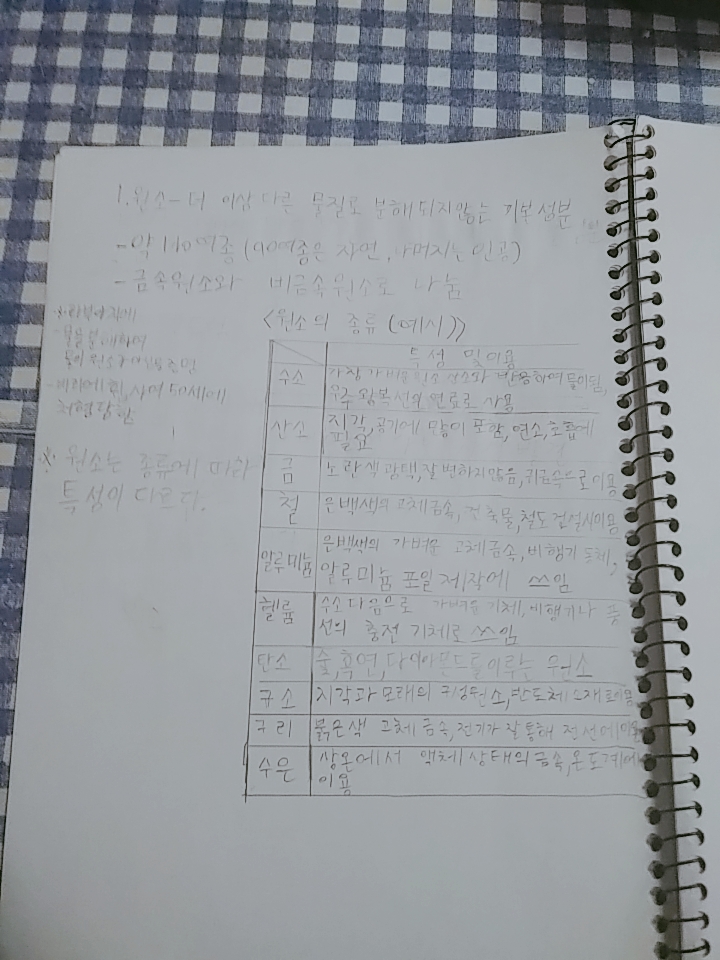 1. 원소 - 더 이상 다른 물질로 분해되지않는 기본성분
- 약 110여종 (90여종은 자연, 나머지는 인공)
- 금속원소와 비금속원소로 나눔
<원소의 종류 (예시)>
※ 라부아지에
- 물을분해하여
물이 원소가 아님을 증명
사여 50세에
처형당함
※ 원소는 종류에 따라
특성이 다르다.
특성 및이용
수소 가장 가벼운 원소 산소와 반응하여 물이됨,
우주 왕복선의 연료로 사용
산소 지각, 공기에 많이 포함, 연소, 호흡에
필요
금 노란색 광택, 잘 변하지않음, 귀금속으로이용
철 은백색의 고체금속, 건축물, 철도 건설시이용
알루미늄 은백색의 가벼운 고체금속, 비행기 동체,
알루미늄 포일제작에 쓰임
헬륨 수소다음으로 가벼운 기체, 비행기나 풍
선의 충전 기체로 쓰임
탄소 숯, 흑연, 다이아몬드를이루는 원소
규소 지각과 모래의 구성원소, 반도체 소재로이용
구리 붉은색 고체 금속, 전기가 잘 통해 전선에이용
수은 상온에서 액체 상태의 금속, 온도계에
이용